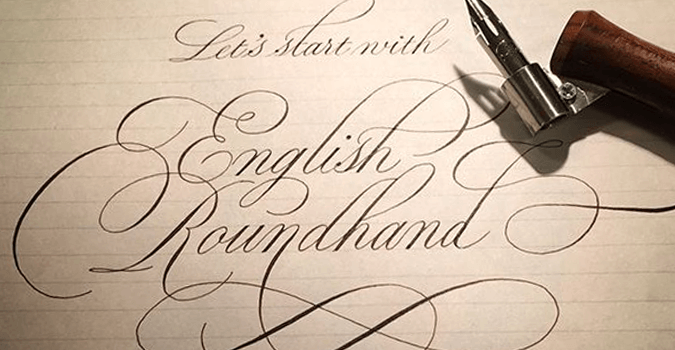 Let's start with
English
Roundhand